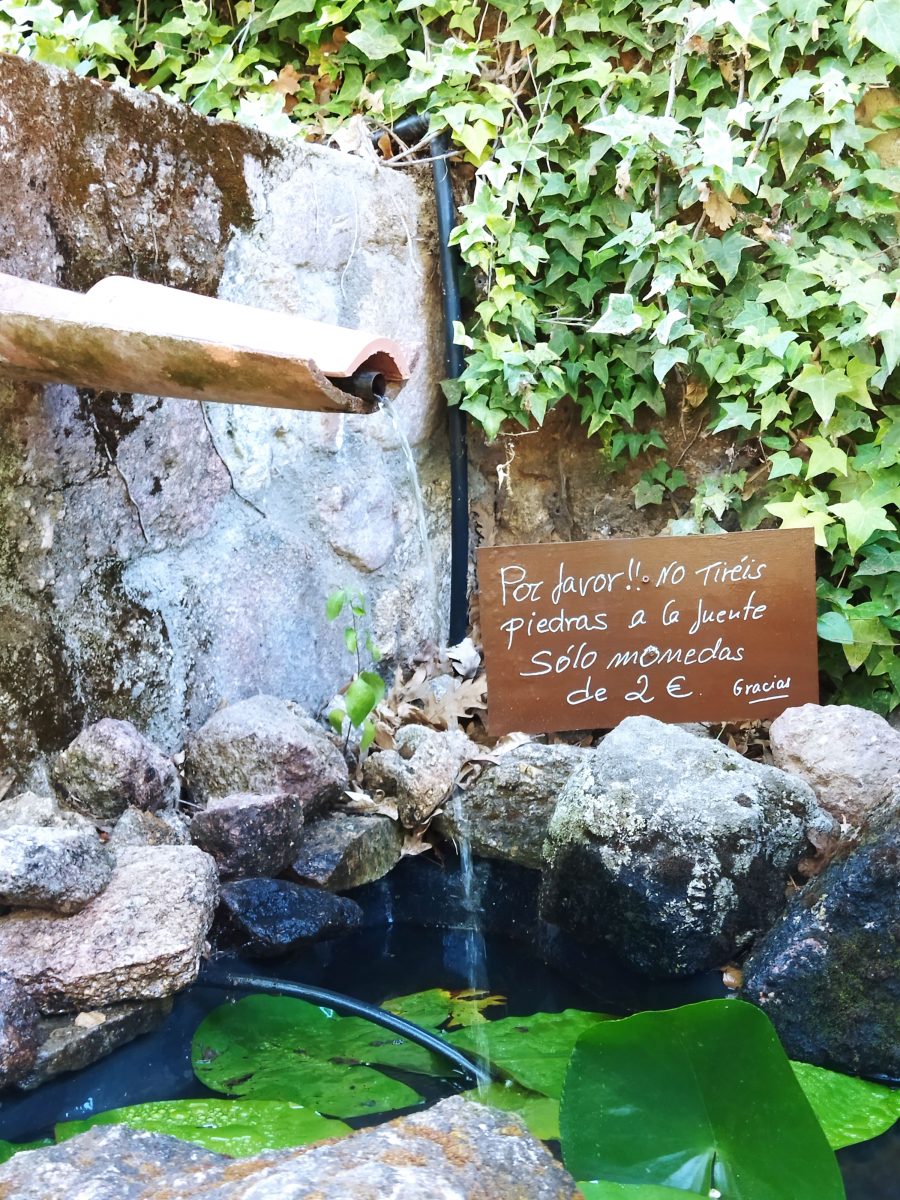 Por favor!! No Tiréis
piedras a la fuente
Sólo monedas
de 2 €. Gracias